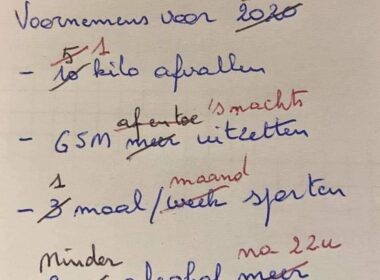 Voornemens voor 2020
5 1
- 10 kilo afvallen
af en toe 's nachts
- GSM meer uitzetten
1 maand
- 3 maal/week sporten
minder na 22u
alcohol meer